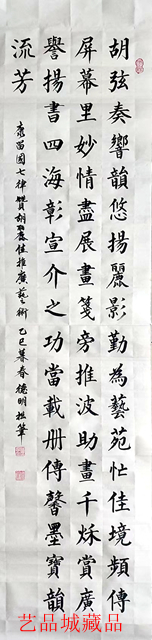 胡弦奏響韻悠揚麗影勤為藝苑忙佳境頻傳
屏幕里妙情盡展畫箋旁推波助畫千秌賞廣
譽揚書四海彰宣介之功當載册傳馨墨寶韻
流芳
苗國七律贊胡麗佳推廣藝術乙巳暮春德明拙筆
艺品城藏品